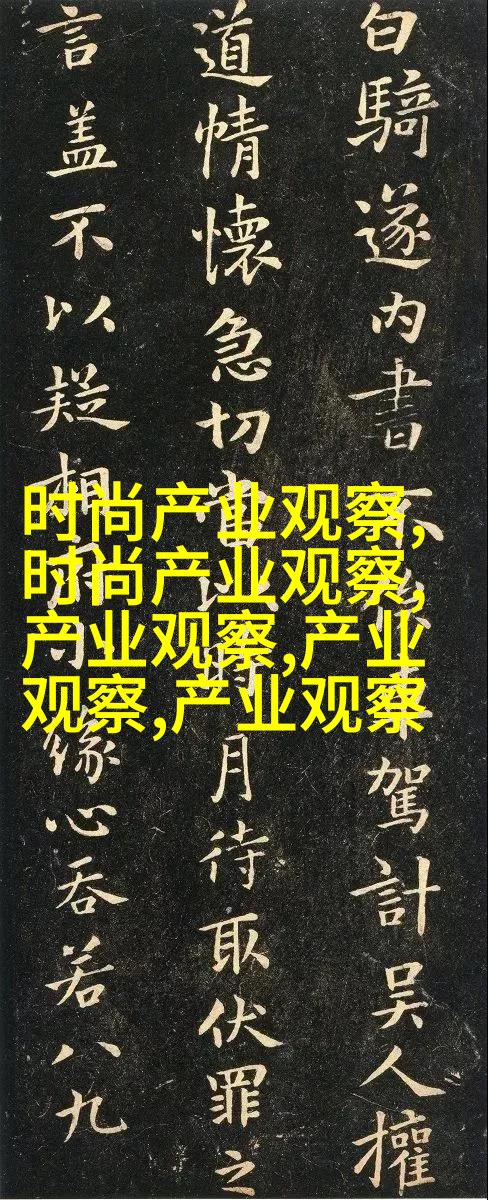 白騎遂内書不車駕計吴人權
道情懷急切當以時月待取伏罪之
言盖不以疑相緣心吞若八九
时尚产业观察,
时尚产业观察,
产业观察,产业
观察,产业观察